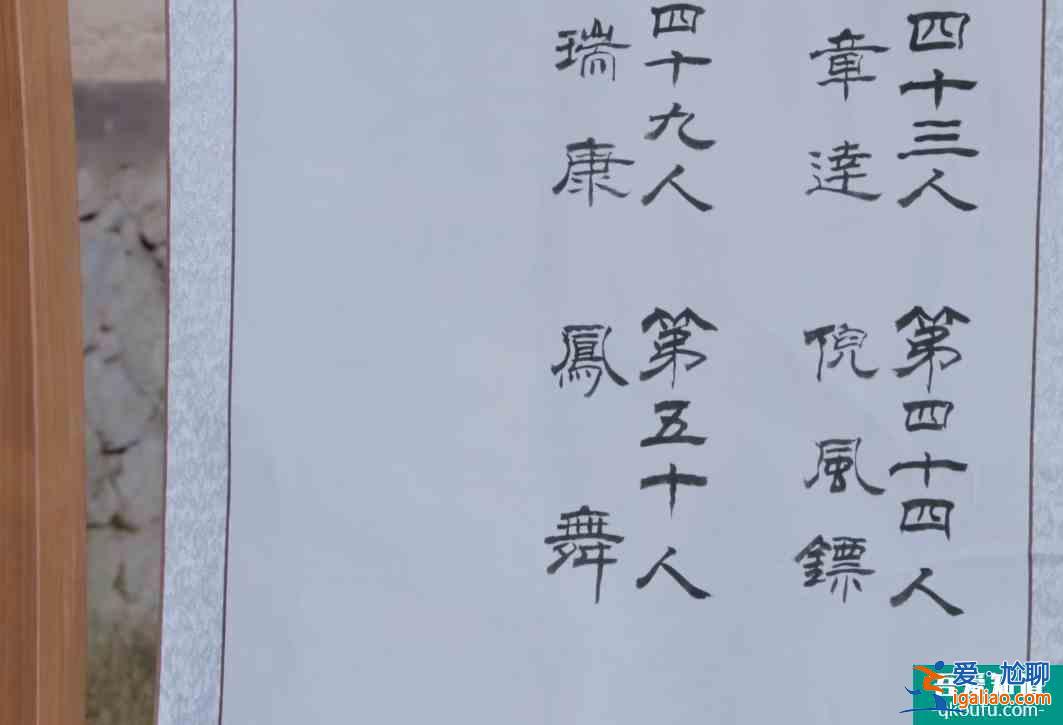 四十三人
章達
第四十四人
倪風鏢
四十九人
瑞康
第五十人
鳳舞
爱尬聊
igaliao.com
qkoufu.com-